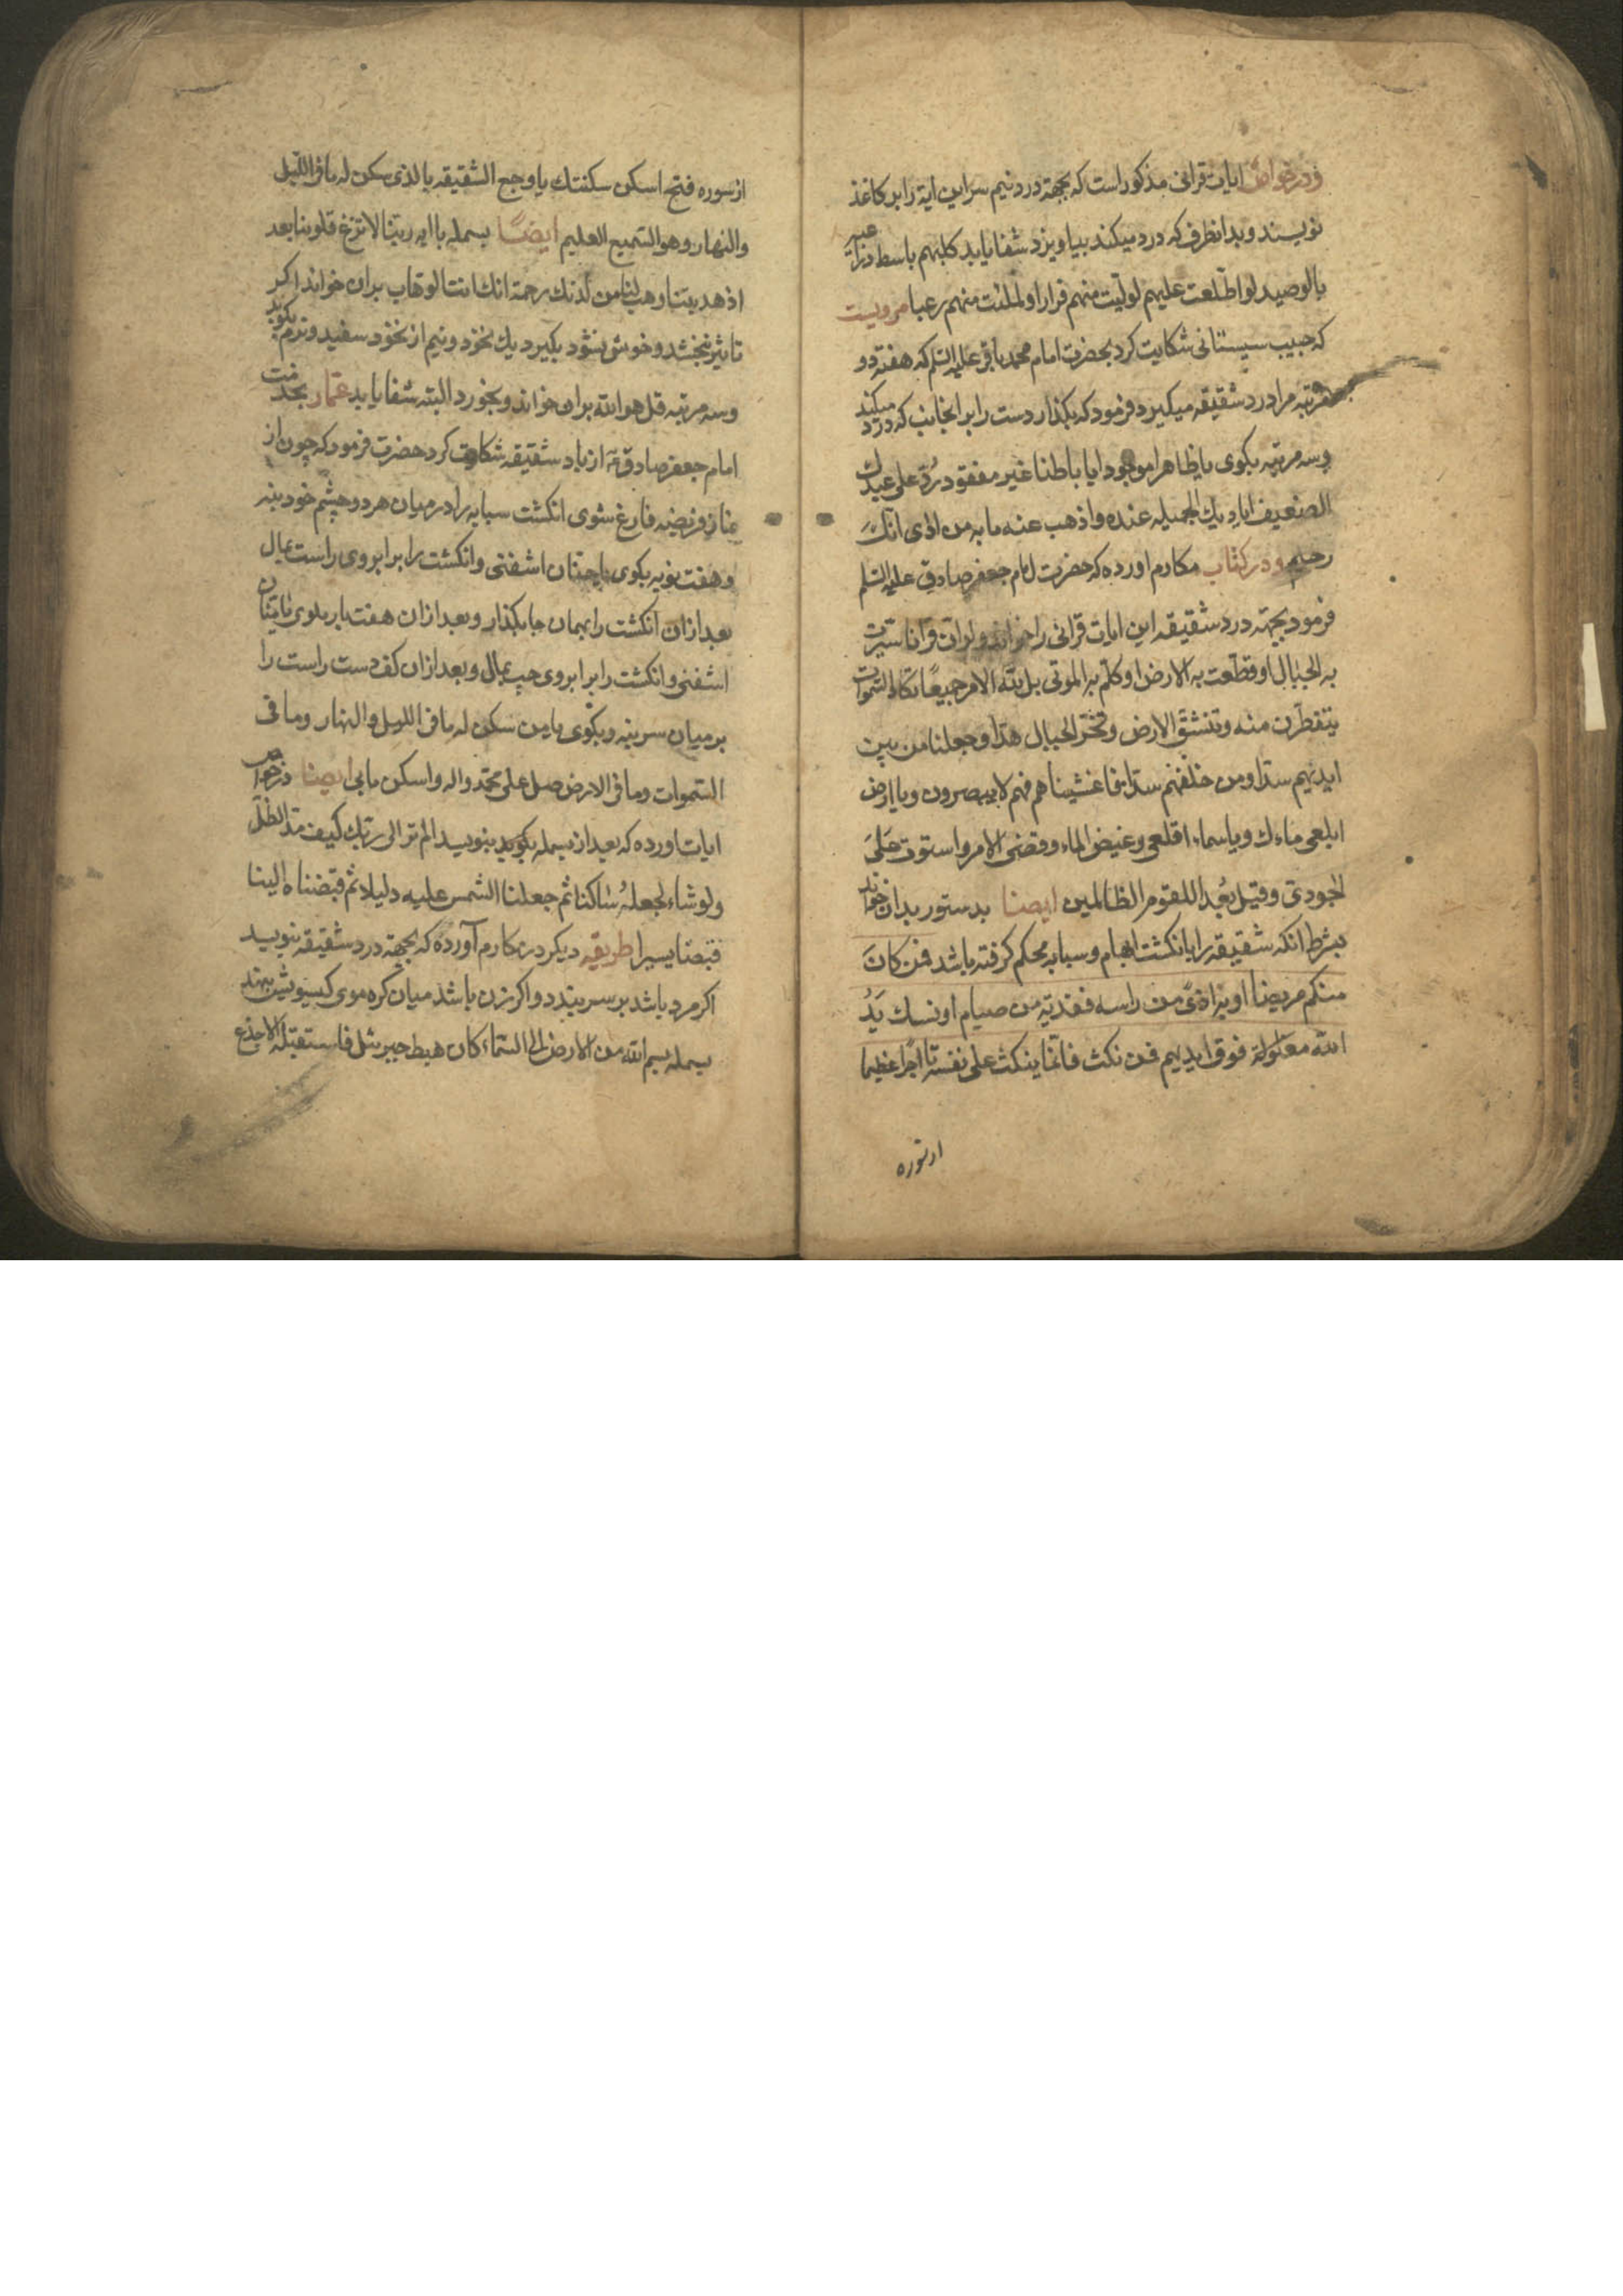 و در خواص ایات قرانی مذکور است که بجهة درد نیم سر این ایة را بر کاغذ
نویسند و بدانطرف که درد میکند بیاویزد شفا یابد کلبهم باسط ذراعیه
بالوصید لو اطّلعت علیهم لولیت منهم فرارا و لملئت منهم رعبا مرویست
که حبیب سیستانی شکایت کرد بحضرت امام محمد باقر علیه السّلم که هفته دو
مرتبه مرا درد شقیقه میکیرد فرمود که بکذار دست را بر انجانب که درد میکند
و سه مرتبه بکوی یا ظاهرا موجودا یا باطنا غیر مفقود رُدّ علی عبدك
الضعیف ایادیك الجمیله عنده و اذهب عنه ما به من اذی انّكَ
رحیم و در کتاب مکارم اورده که حضرت امام جعفر صادق علیه السّلم
فرمود بجهته درد شقیقه این ایات قرانی را خوانند ولو انّ قرانا سیّرت
به الجبال او قطّعت به الارض او کلّم به الموتی بل للّه الامر جمیعًا تکاد السّموات
یتفطّرن منه و تنشقّ الارض و تخرّ الجبال هدّا و جعلنا من بین
ایدیهم سدّا و من خلفهم سدّا فاغشیناهم فهم لا یبصرون و یا ارض
ابلعی ماءك و یا سماء اقلعی و غیض الماء و قضی الامر و استوت عَلیَ
الجودیّ و قیل بُعدا للقوم الظالمین ایضا بدستور بدان خواند
بشرط انکه شقیقه را بانکشت ابهام و سبابه محکم کرفته باشد فمن کانَ
منکم مریضا او به اذیً من راسه ففدیة من صیام او نسك یَدُ
اللّه فوق ایدیهم فمن نکث فانّما ینکث علی نفسه تا اجرًا عظیما
از سوره
از سوره فتح اسکن سکنتك یا وجع الشقیقه بالذی سکن له ما فی اللّیل
والنهار وهو السّمیع العلیم ایضًا بسمله با ایه ربّنا لا تزغ قلوبنا بعد
اذ هدیتنا و هب لنا من لدنك رحمة انك انت الوهاب بران خواند اکر
تاثیر نبخشد و خوش نشود بکیرد یك نخود و نیم از نخود سفید و نرم بکوبد
و سه مرتبه قل هو اللّه بران خواند و بخورد البته شفا یابد عمّار بخدمت
امام جعفر صادق ع از باد شقیقه شکایت کرد حضرت فرمود که چون از
نماز فریضه فارغ شوی انکشت سبابه را در میان هر دو چشم خود بنه
و هفت نوبه بکوی یا حنّان اشفنی و انکشت را بر ابروی راست بمال
بعد ازان انکشت را بهمان جا بکذار و بعد ازان هفت بار بکوی یا منّان
اشفنی و انکشت را بر ابروی چپ بمال و بعد ازان کف دست راست را
بر میان سر بنه و بکوی یا من سکن له ما فی اللیل و النهار و ما فی
السّموات و ما فی الارض صل علی محمّد و اله و اسکن ما بی ایضا در خواص
ایات اورده که بعد از بسمله بنویسد الم تر الی ربّك کیف مدّ الظلّ
و لو شاء لجعلهُ ساکنا ثم جعلنا الشمس علیه دلیلا ثم قبضناه الینا
قبضا یسیرا طریقه دیکر در مکارم آورده که بجهة درد شقیقه بنویسد
اکر مرد باشد بر سر بندد و اکر زن باشد میان کره موی کیسویش بنهد
بسمله بسم اللّه من الارض الی السّماء کان هبط جبرئیل فاستقبله الاجدع